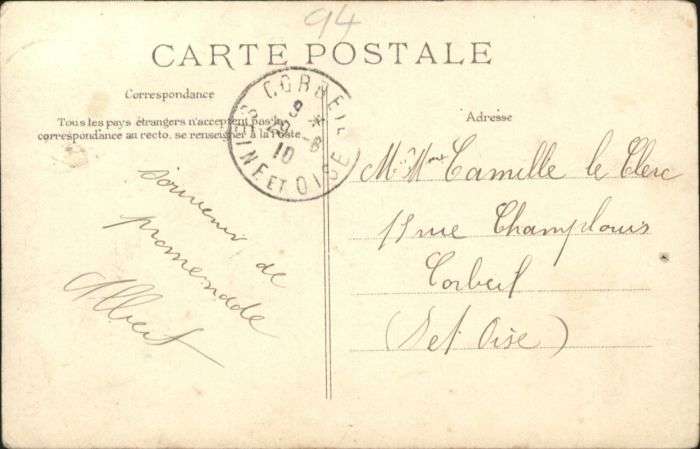 94
CARTE POSTALE
Correspondance
Tous les pays étrangers n'acceptent pas la
correspondance au recto, se renseigner à la Poste.
CORBEIL
9 *
29 - 6
10
SEINE ET OISE
souvenir de
promenade
Albert
Adresse
Mr Mme Camille le Clerc
11 rue Champlouis
Corbeil
(S et Oise)